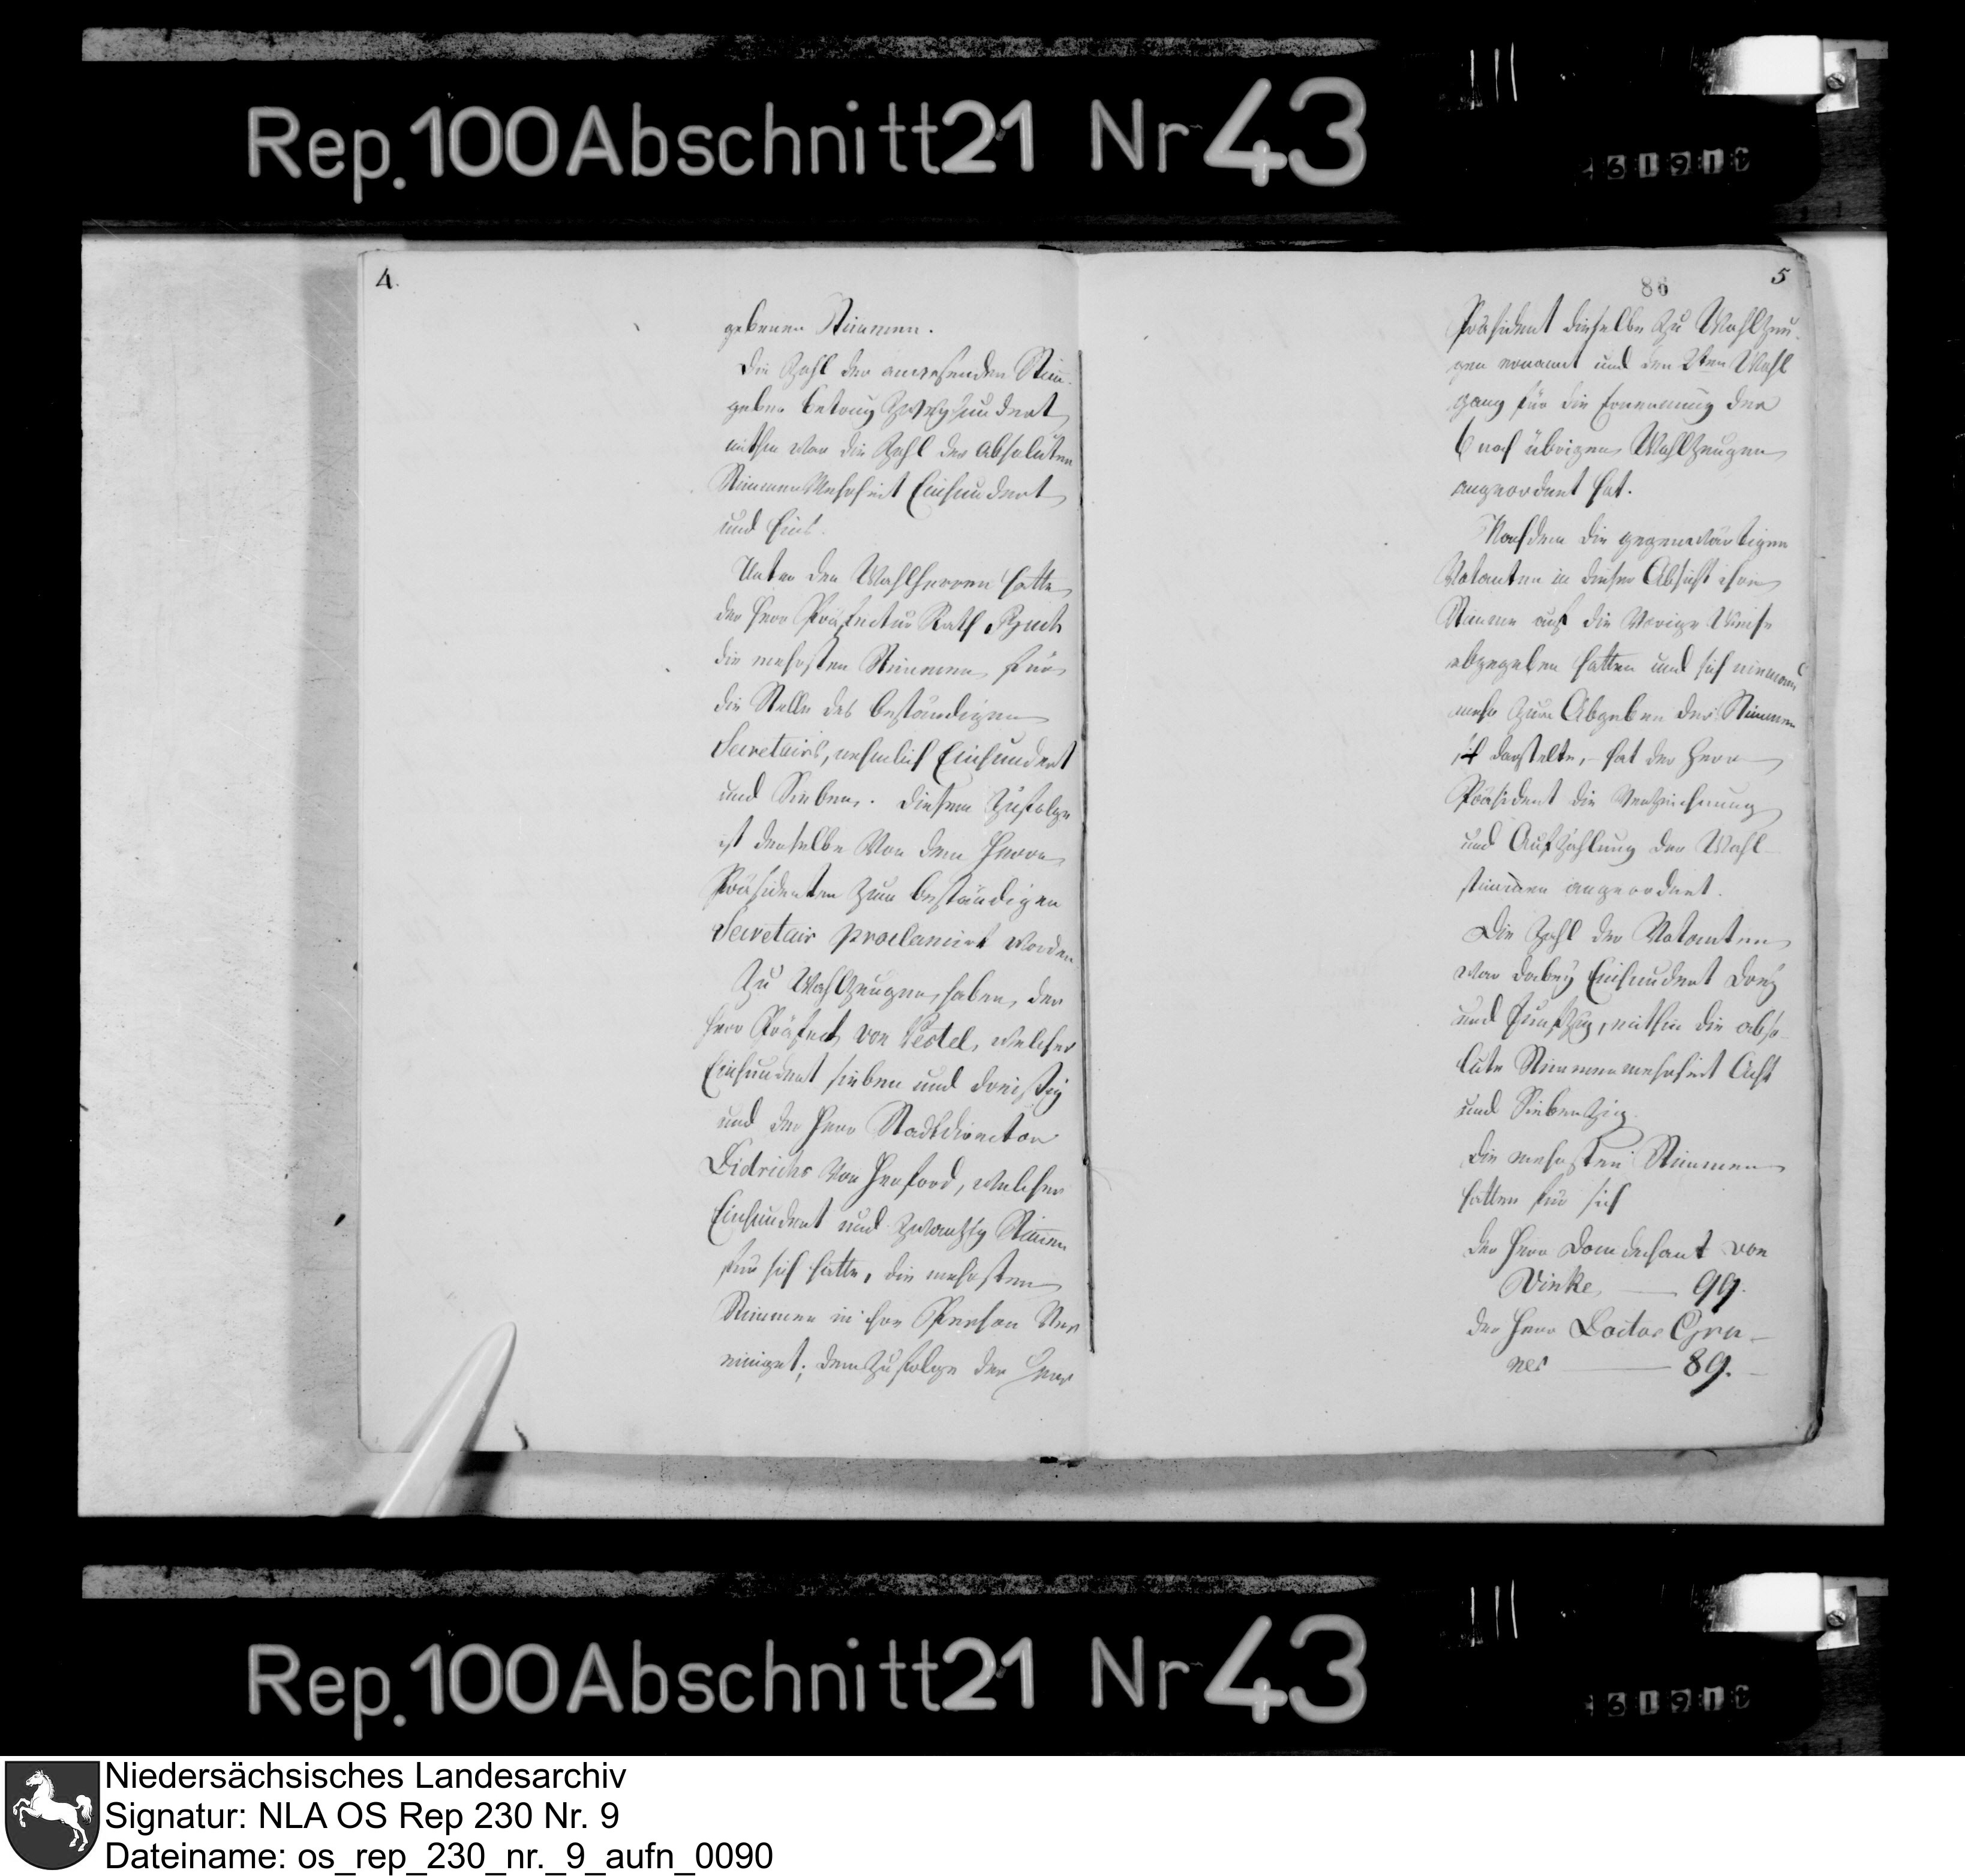 Rep. 100 Abschnitt 21 Nr 43
6191
4.
gebenen Stimmen.
Die Zahl der anwesenden Stim-
geber betrug Zweyhundert
mithin war die Zahl der absoluten
Stimmen Mehrheit Einhundert
und Eins.
Unter den Wahlherren hatte
der Herr Präfectur Rath
die mehrsten Stimmen, für
die Stelle des beständigen
Secretairs, nehmlich Einhundert
und Sieben. Diesem Zufolge
ist derselbe von dem Herrn
Präsidenten zum beständigen
Secretair proclamirt worden
Zu Wahlzeugen haben, der
Herr Präfect von Pestel, welcher
Einhundert sieben und dreißig
und der Herr Stadtdirector
Didrichs von Herford, welcher
Einhundert und zwanzig Stimmen
für sich hatte, die mehrsten
Stimmen in ihre Person Ver
einiget; dem Zufolge der Herr
86
5
Präsident dieselbe zu Wahlzeu-
gen ernannt und den 2ten Wahl
gang für die Ernennung der
6 noch übrigen Wahlzeugen
angeordnet hat.
Nachdem die gegenwärtigen
Votanten in dieser Absicht ihre
Stimme auf die Vorige Weise
abgegeben hatten und sich niemand
mehr zum Abgeben der Stimmen
darstelte, hat der Herr
Präsident die Verzeichnung
und Aufzählung der Wahl-
stimmen angeordnet.
Die Zahl der Votanten
war dabey Einhundert Drey
und Funfzig, mithin die abso-
lute Stimmenmehrheit Acht
und Siebenzig.
Die mehrsten Stimmen
hatten für sich
der Herr Domdechant von
Vinke — 99.
der Herr Doctor Gru-
ner — 89.
Rep. 100 Abschnitt 21 Nr 43
6191
Niedersächsisches Landesarchiv
Signatur: NLA OS Rep 230 Nr. 9
Dateiname: os_rep_230_nr._9_aufn_0090